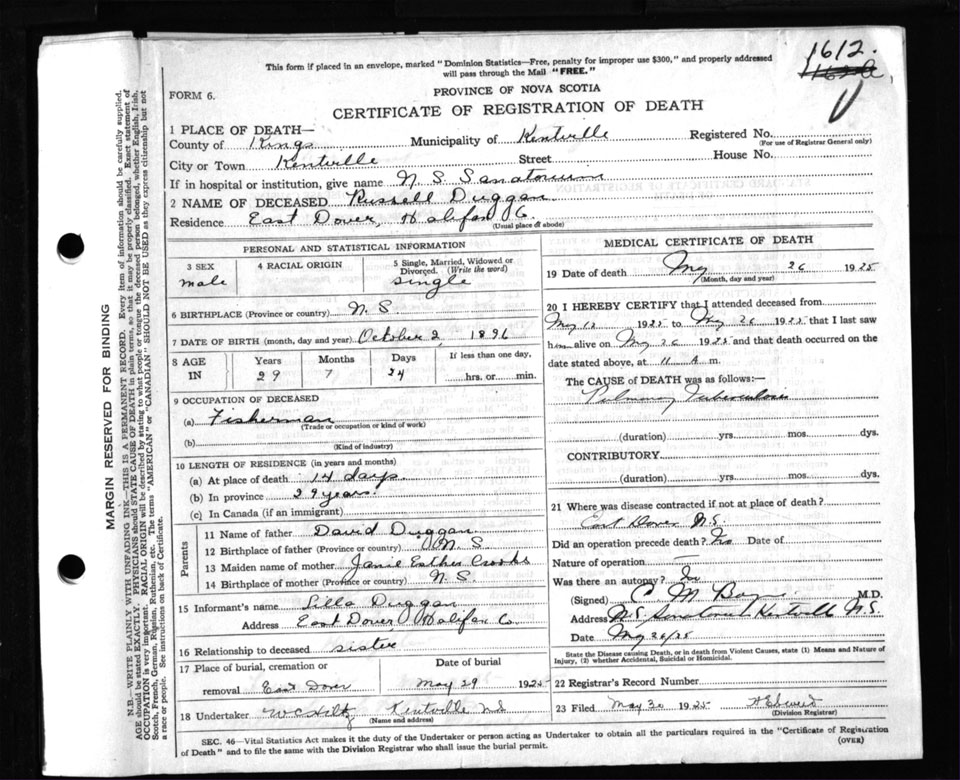 1612.
This form if placed in an envelope, marked "Dominion Statistics—Free, penalty for improper use $300," and properly addressed
will pass through the Mail "FREE."
FORM 6.
PROVINCE OF NOVA SCOTIA
CERTIFICATE OF REGISTRATION OF DEATH
1 PLACE OF DEATH—
County of Kings Municipality of Kentville Registered No.
(For use of Registrar General only)
City or Town Kentville Street House No.
If in hospital or institution, give name N. S. Sanatorium
2 NAME OF DECEASED Russell Duggan
Residence East Dover, Halifax Co.
(Usual place of abode)
PERSONAL AND STATISTICAL INFORMATION
3 SEX
male
4 RACIAL ORIGIN
5 Single, Married, Widowed or
Divorced. (Write the word)
single
6 BIRTHPLACE (Province or country) N. S.
7 DATE OF BIRTH (month, day and year) October 2 1896
8 AGE
IN
Years Months Days If less than one day,
29 7 24 hrs. or min.
9 OCCUPATION OF DECEASED
(a) Fisherman
(Trade or occupation or kind of work)
(b)
(Kind of industry)
10 LENGTH OF RESIDENCE (in years and months)
(a) At place of death 14 days
(b) In province 29 years.
(c) In Canada (if an immigrant)
Parents
11 Name of father David Duggan
12 Birthplace of father (Province or country) N. S
13 Maiden name of mother Janie Esther Crooks
14 Birthplace of mother (Province or country) N. S.
15 Informant's name Lilla Duggan
Address East Dover Halifax Co.
16 Relationship to deceased sister
17 Place of burial, cremation or
removal East Dover
Date of burial
May 29 1925
18 Undertaker W C Hiltz Kentville N S
(Name and address)
MEDICAL CERTIFICATE OF DEATH
19 Date of death May 26 1925
(Month, day and year)
20 I HEREBY CERTIFY that I attended deceased from
May 12 1925 to May 26 1925 that I last saw
him alive on May 26 1925 and that death occurred on the
date stated above, at 11 A m.
The CAUSE of DEATH was as follows:—
Pulmonary Tuberculosis
(duration) yrs. mos. dys.
CONTRIBUTORY
(duration) yrs. mos. dys.
21 Where was disease contracted if not at place of death?
East Dover N.S.
Did an operation precede death? No Date of
Nature of operation
Was there an autopsy? No
(Signed) C. M. M.D.
Address N.S. Sanatorium Kentville N.S.
Date May 26/25
State the Disease causing Death, or in death from Violent Causes, state (1) Means and Nature of
Injury, (2) whether Accidental, Suicidal or Homicidal.
22 Registrar's Record Number
23 Filed May 30 1925
(Division Registrar)
SEC. 46—Vital Statistics Act makes it the duty of the Undertaker or person acting as Undertaker to obtain all the particulars required in the "Certificate of Registration
of Death" and to file the same with the Division Registrar who shall issue the burial permit. (OVER)
MARGIN RESERVED FOR BINDING
N.B.—WRITE PLAINLY WITH UNFADING INK—THIS IS A PERMANENT RECORD. Every item of information should be carefully supplied.
AGE should be stated EXACTLY. PHYSICIANS should STATE CAUSE OF DEATH in plain terms, so that it may be properly classified. Exact statement of
OCCUPATION is very important. RACIAL ORIGIN will be described by stating to what people or tongue the deceased person belonged, whether English, Irish,
Scotch, French, German, Russian, Ruthenian, etc. The terms "AMERICAN" or "CANADIAN" SHOULD NOT BE USED as they express citizenship but not
a race or people. See instructions on back of Certificate.